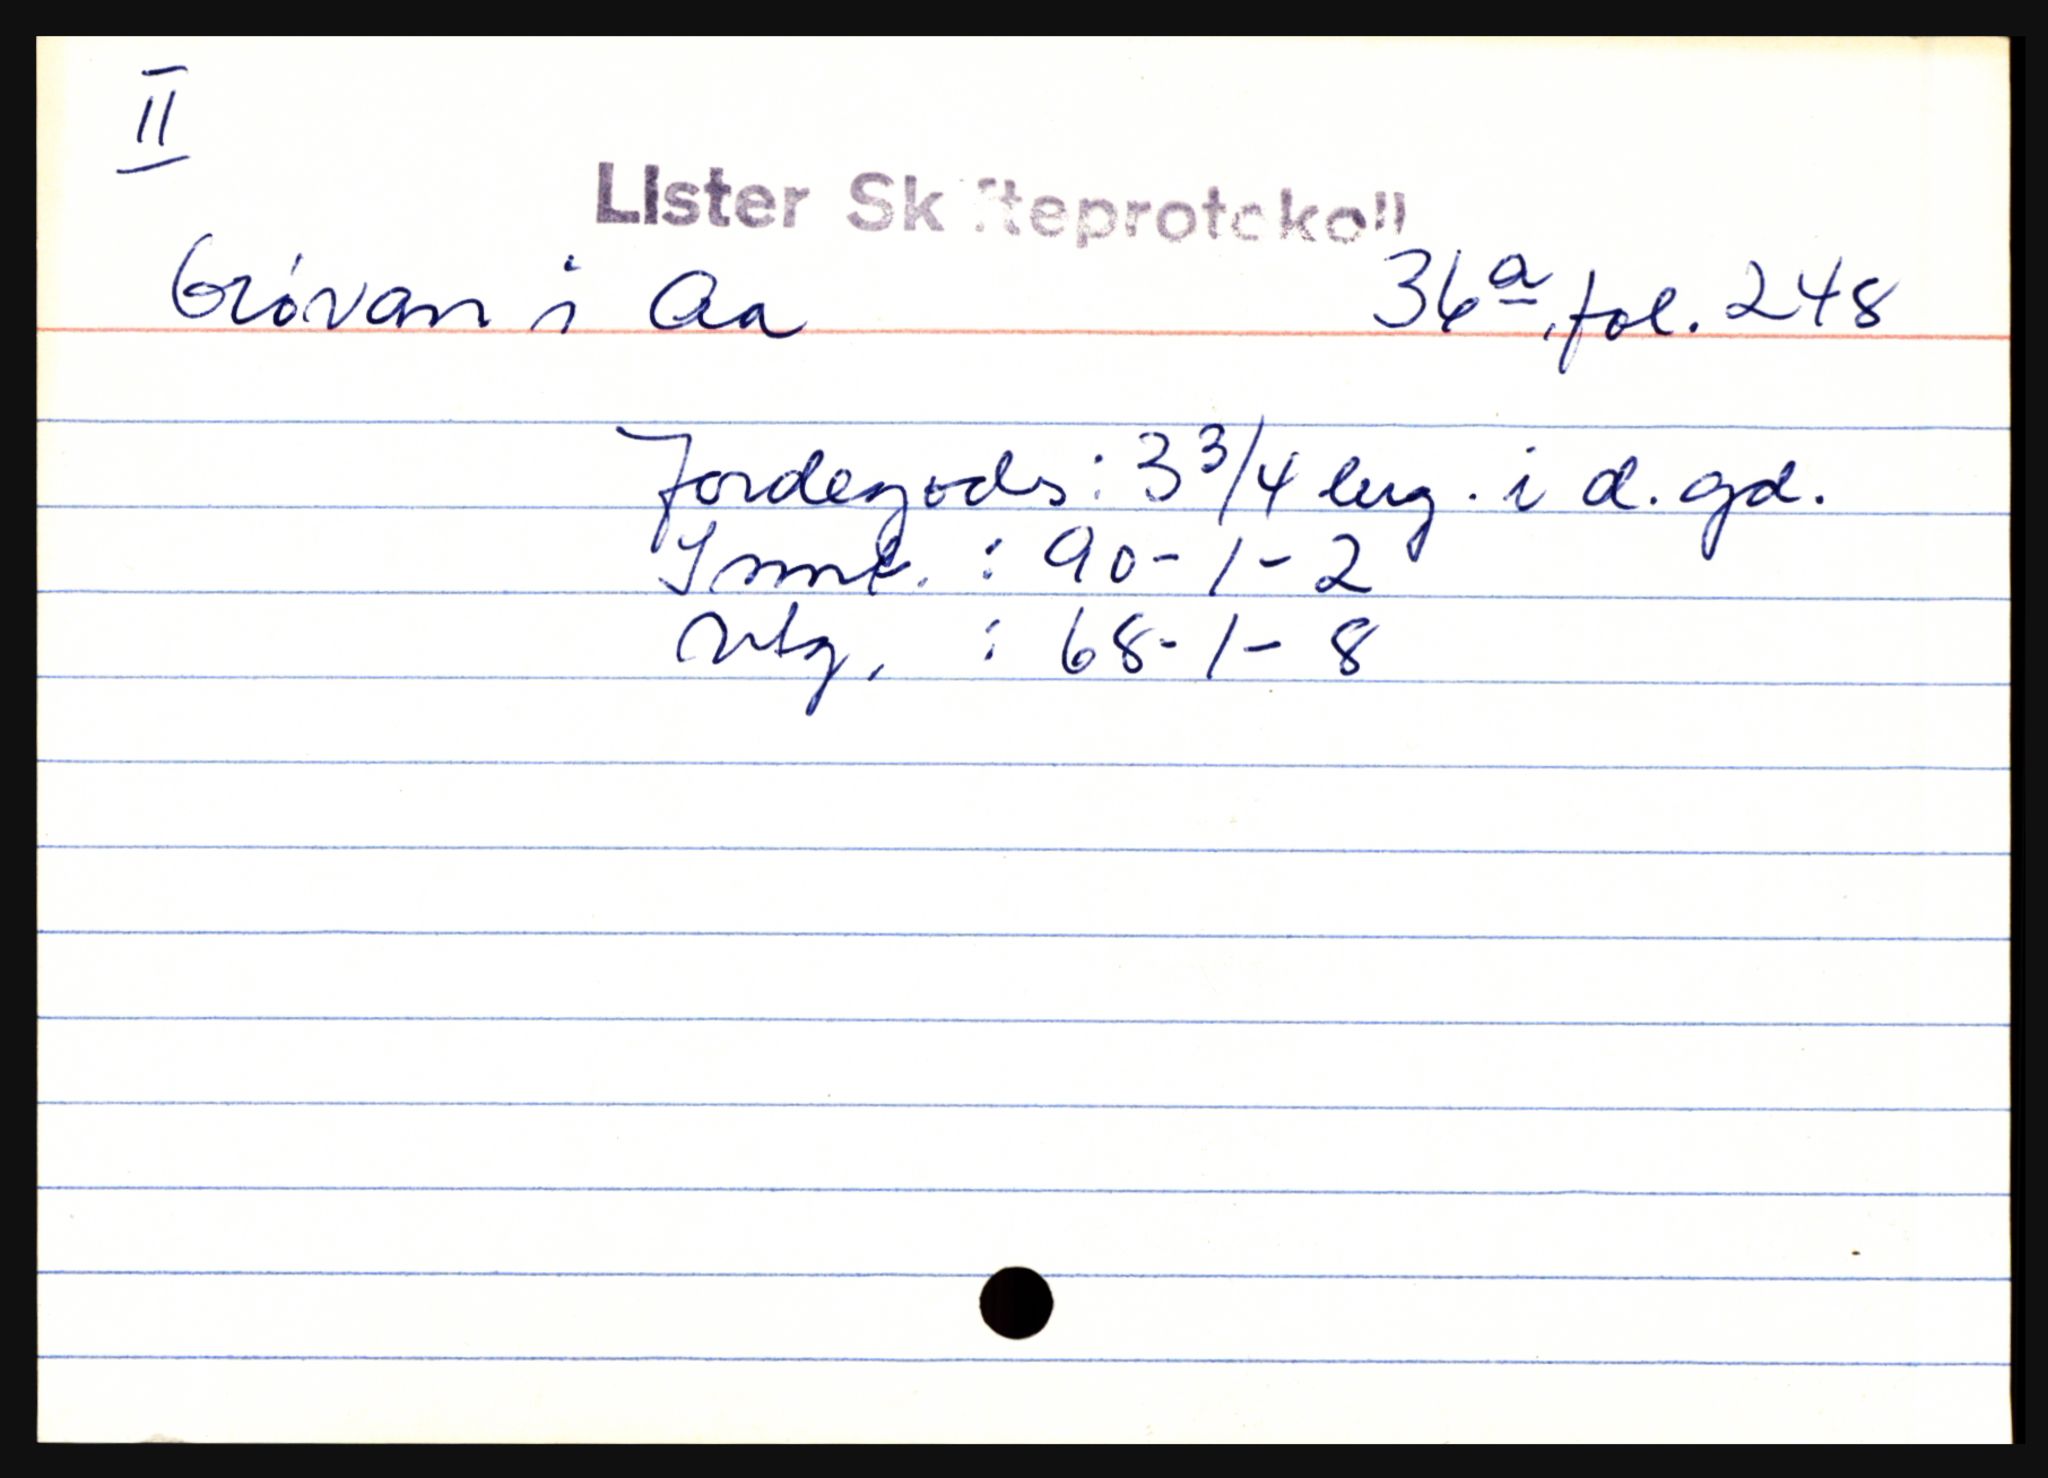 II
LIster Skifteprotokoll
Grövan i Aa 36a, fol. 248
Jordegods: 3 3/4 lug. i d. gd.
Innt. : 90-1-2
Utg. : 68-1-8